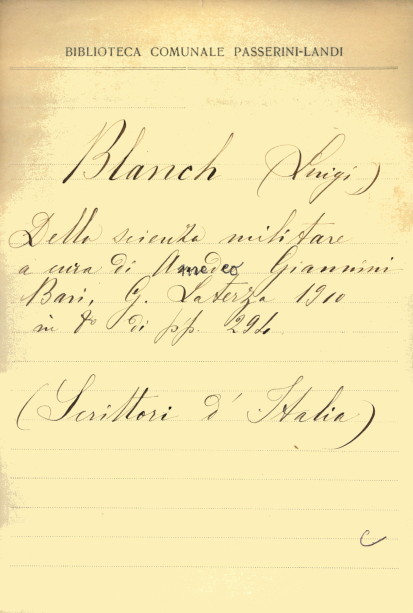 BIBLIOTECA COMUNALE PASSERINI-LANDI
Blanch (Luigi)
Della scienza militare
a cura di Amedeo Giannini
Bari, G. Laterza 1910
in 8° di pp. 294
(Scrittori d'Italia)
C